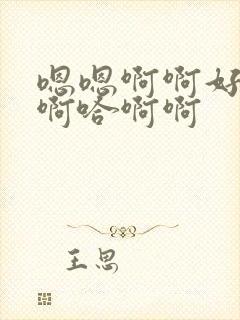 嗯嗯啊啊好
啊哈啊啊
王恩